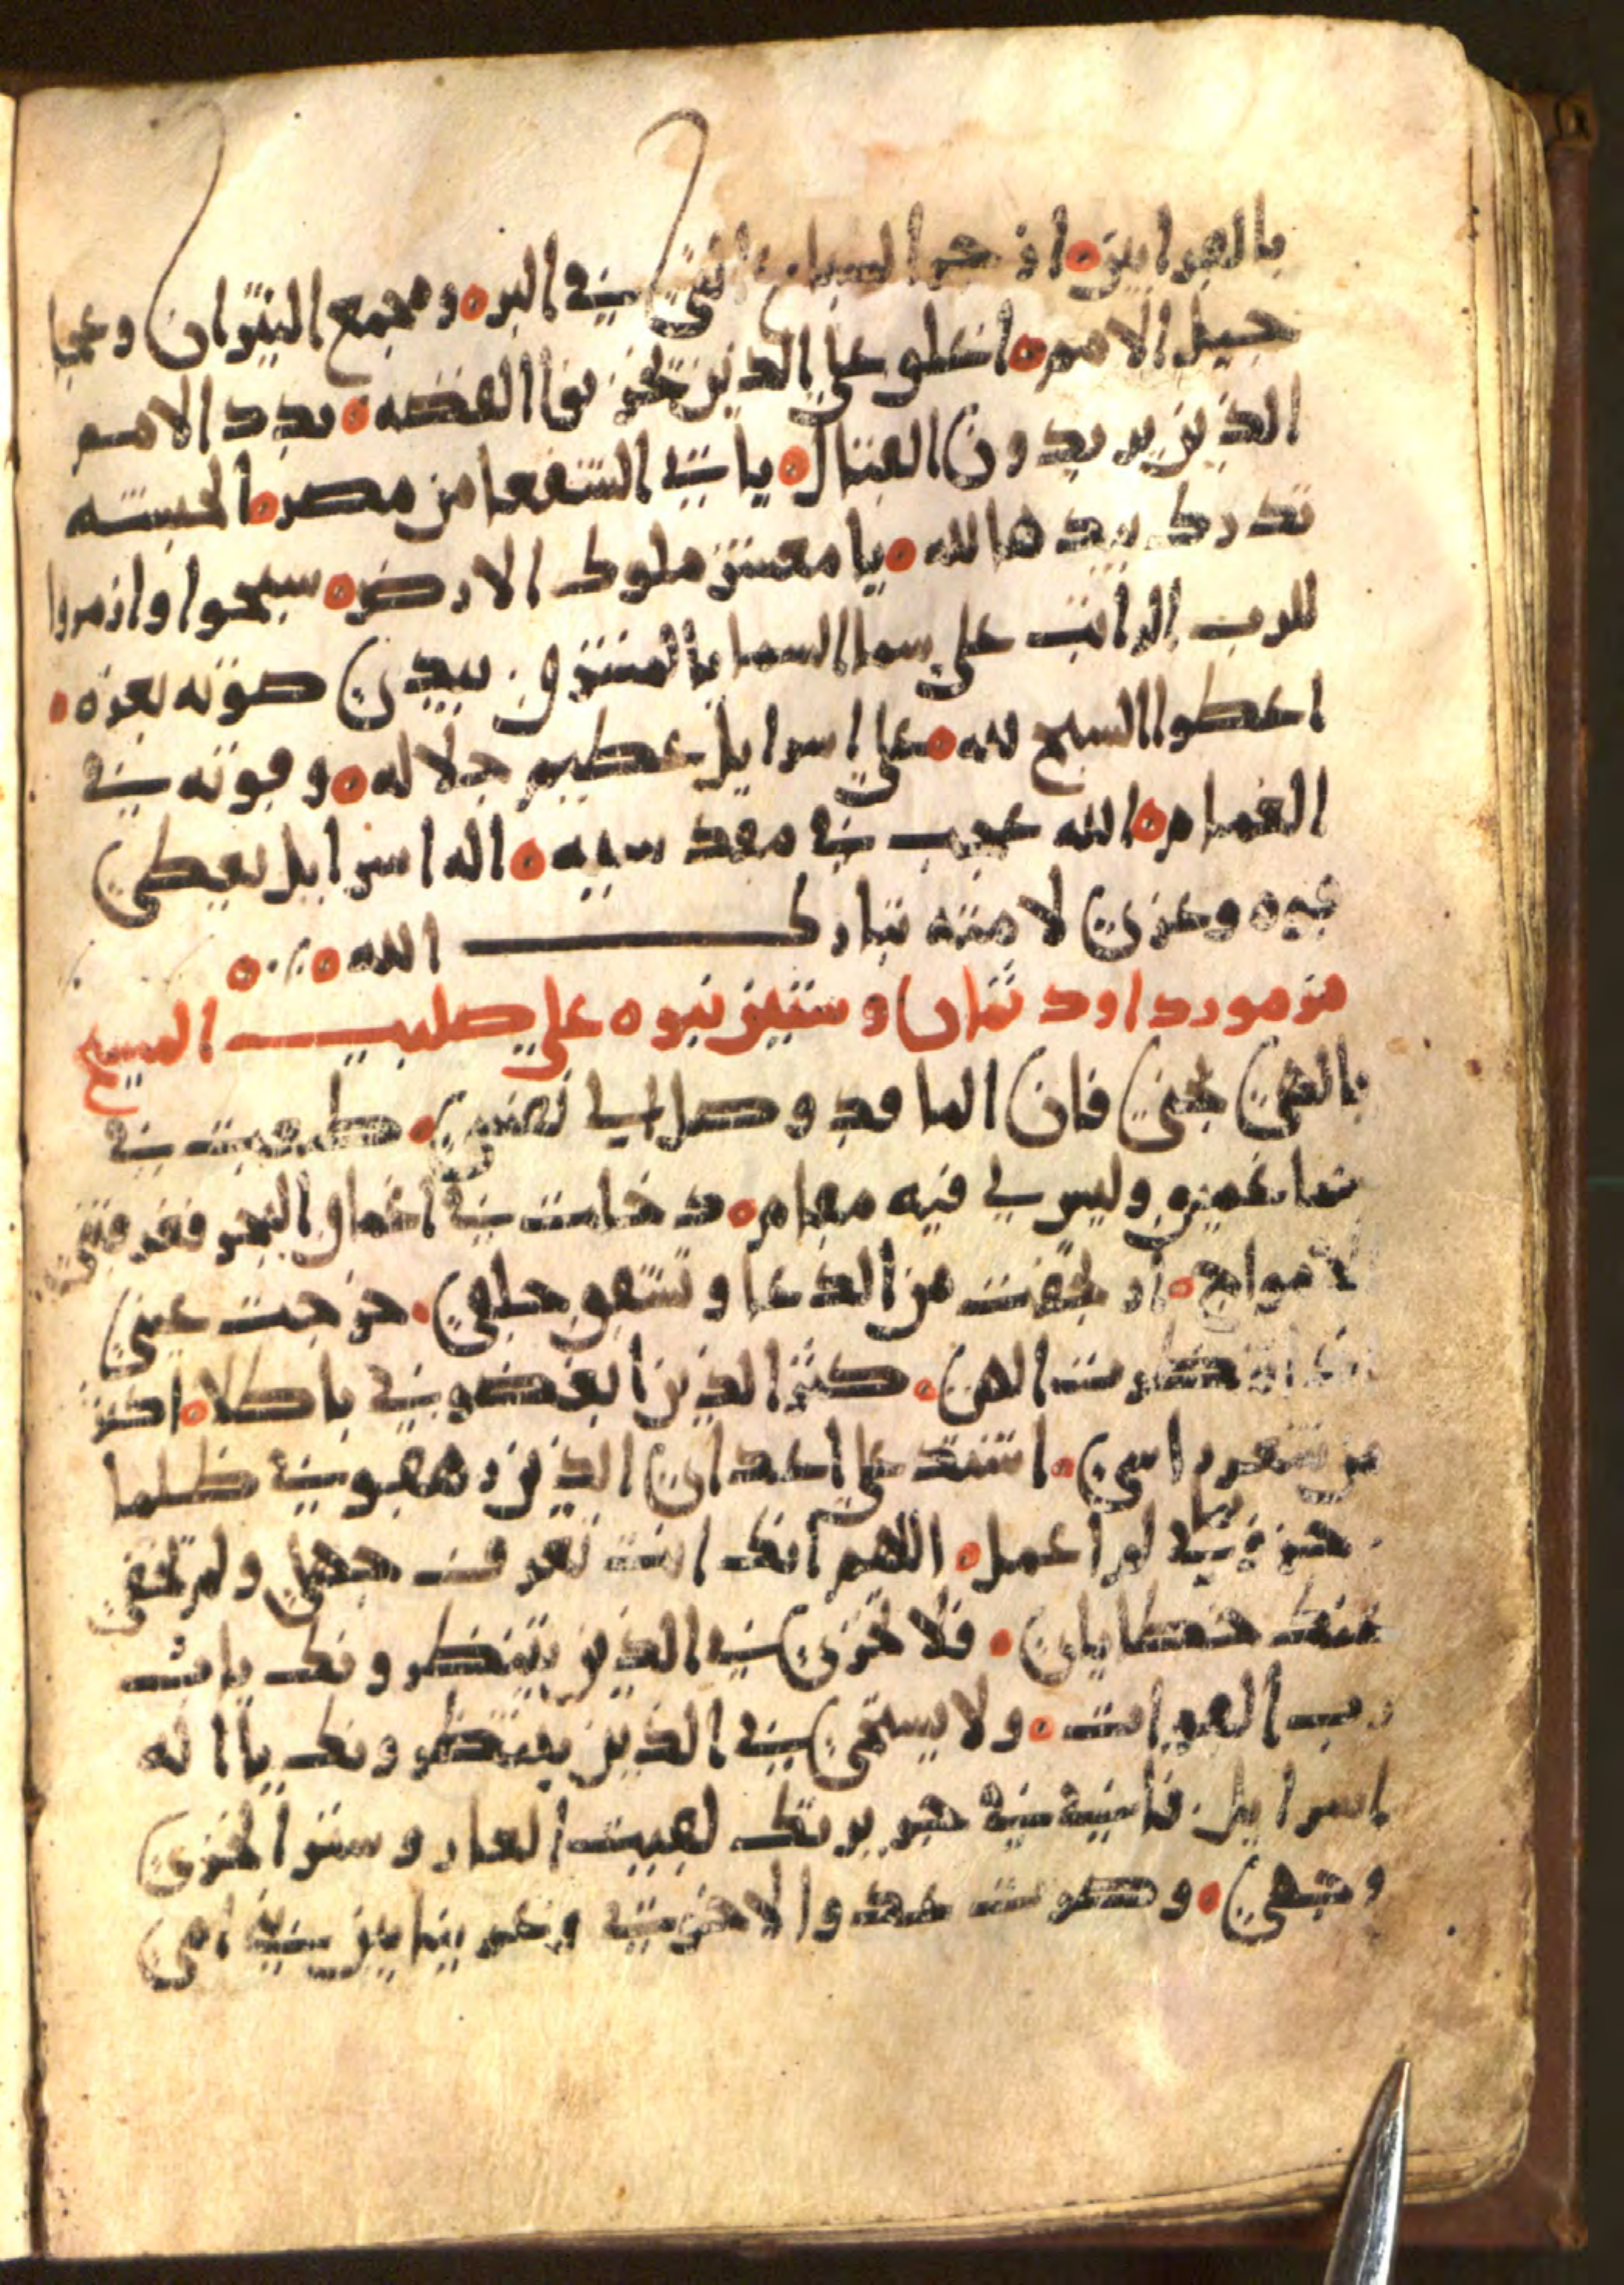 بالقرابين ٥ ازجر السباع التي في البر ٥ ومجمع الثيران وعجا
جيل الامم ٥ انغلو علي الذين تجربوا الفضه ٥ بدد الامم
الذين يريدون القتال ٥ ياتي الشفعا من مصر ٥ الحبشه
تدرك بيدها لله ٥ يا معشر ملوك الارض ٥ سبحوا وازمروا
للرب الراكب على سما السما بالمشرق . بيدي صوته بعزه ٥
اعطوا السبح لله ٥ علي اسرايل عظيم جلاله ٥ وقوته في
الغمام ٥ الله عجيب في مقدسيه ٥ اله اسرايل يعطي
قوه وعزي لامته تبارك الله ٥ ٠/٠ ٥
مزمور داود ثمان وستين نبوه علي صليب المسيح
يالهي نجني فان الما قد وصل الي نفسي ٥ طمعت في
حما عميق وليس لي فيه مقام ٥ دخلت في اعماق البحر فغرقتني
الامواج ٥ اد لحقت من الدعا وتشقق حلقي ٥ خرجت عيني
انتظرت الهي ٥ كثر الذين ابغضوني باطلا ٥ اكثر
من شعر راسي ٥ اشتد علي اعداي الذين رهقوني ظلما
حزوني بما لم اعمل ٥ اللهم انك انت تعرف جهلي ولم تخفي
عنك خطاياي ٥ فلا تخزي في الذين ينتظرونك يا
رب القوات ٥ ولا يستحي في الذين ينتظرونك يا اله
اسرايل . فانني في حقويرتك لقيت العار وستر الخزي
وجهي ٥ وصرت عدوا لاخوتي وغريبا بين بني امي